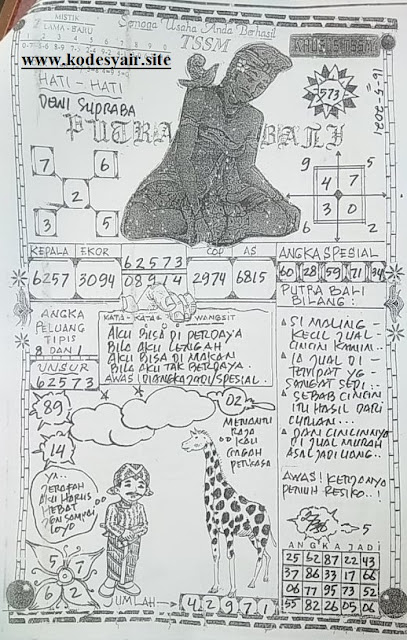 MISTIK
LAMA - BARU
Semoga Usaha Anda Berhasil
TSSM
KHUSUS TSSM
www.kodesyair.site
HATI - HATI
DEWI SUPRABA
PUTRA BALI
573
16-5-2021
7 6
2
3 5
9 5
4 7
3 0
6 2
KEPALA EKOR 62573 COP AS
6257 3094 08914 2974 6815
ANGKA SPESIAL
60 28 59 71 34
PUTRA BALI
BILANG :
SI MALING -
KECIL JUAL -
CINCIN KAWIN..
IA JUAL DI -
TEMPAT YG -
SANGAT SEPI..
SEBAB CINCIN
ITU HASIL DARI
CURIAN...
DAN CINCINNYA
DI JUAL MURAH
ASAL JADI UANG..
AWAS! KERJANYA
PENUH RESIKO..!
ANGKA
PELUANG
TIPIS
8 DAN 1
UNSUR
62573
KATA - KATA WANGSIT
AKU BISA DI PERDAYA
BILA AKU LENGAH
AKU BISA DI MAKAN
BILA AKU TAK BERDAYA.
AWAS! DIANGKA JADI/SPESIAL.
89
14
02
MEMANTU
RAJA
KALI
GAGAH
PERKASA
YA..
JERAFAH
AKU HARUS
HEBAT
JGN SAMPAI
LOYO
5 7
6 2
JUMLAH 42971
5
ANGKA JADI
25 52 87 22 43
37 86 33 17 66
06 77 95 73 52
55 82 26 05 06